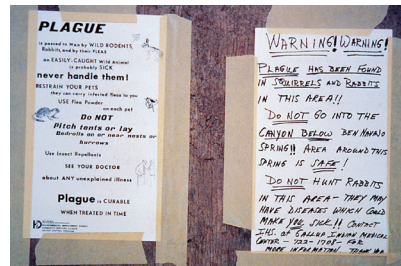 PLAGUE
is passed to Man by WILD RODENTS,
Rabbits, and by their FLEAS
an EASILY-CAUGHT Wild Animal
is probably SICK
never handle them!
RESTRAIN YOUR PETS
they can carry infected fleas to you
USE Flea Powder
on each pet
Do NOT
Pitch tents or lay
Bedrolls on or near nests or
burrows
Use Insect Repellents
SEE YOUR DOCTOR
about ANY unexplained illness
Plague is CURABLE
WHEN TREATED IN TIME
WARNING! WARNING!
PLAGUE HAS BEEN FOUND
IN SQUIRRELS AND RABBITS
IN THIS AREA!!
DO NOT GO INTO THE
CANYON BELOW BEN NAVAJO
SPRING!! AREA AROUND THIS
SPRING IS SAFE!
DO NOT HUNT RABBITS
IN THIS AREA - THEY MAY
HAVE DISEASES WHICH COULD
MAKE YOU SICK!! CONTACT
IHS. OF GALLUP INDIAN MEDICAL
CENTER - 722-1708 - FOR
MORE INFORMATION. THANK YOU